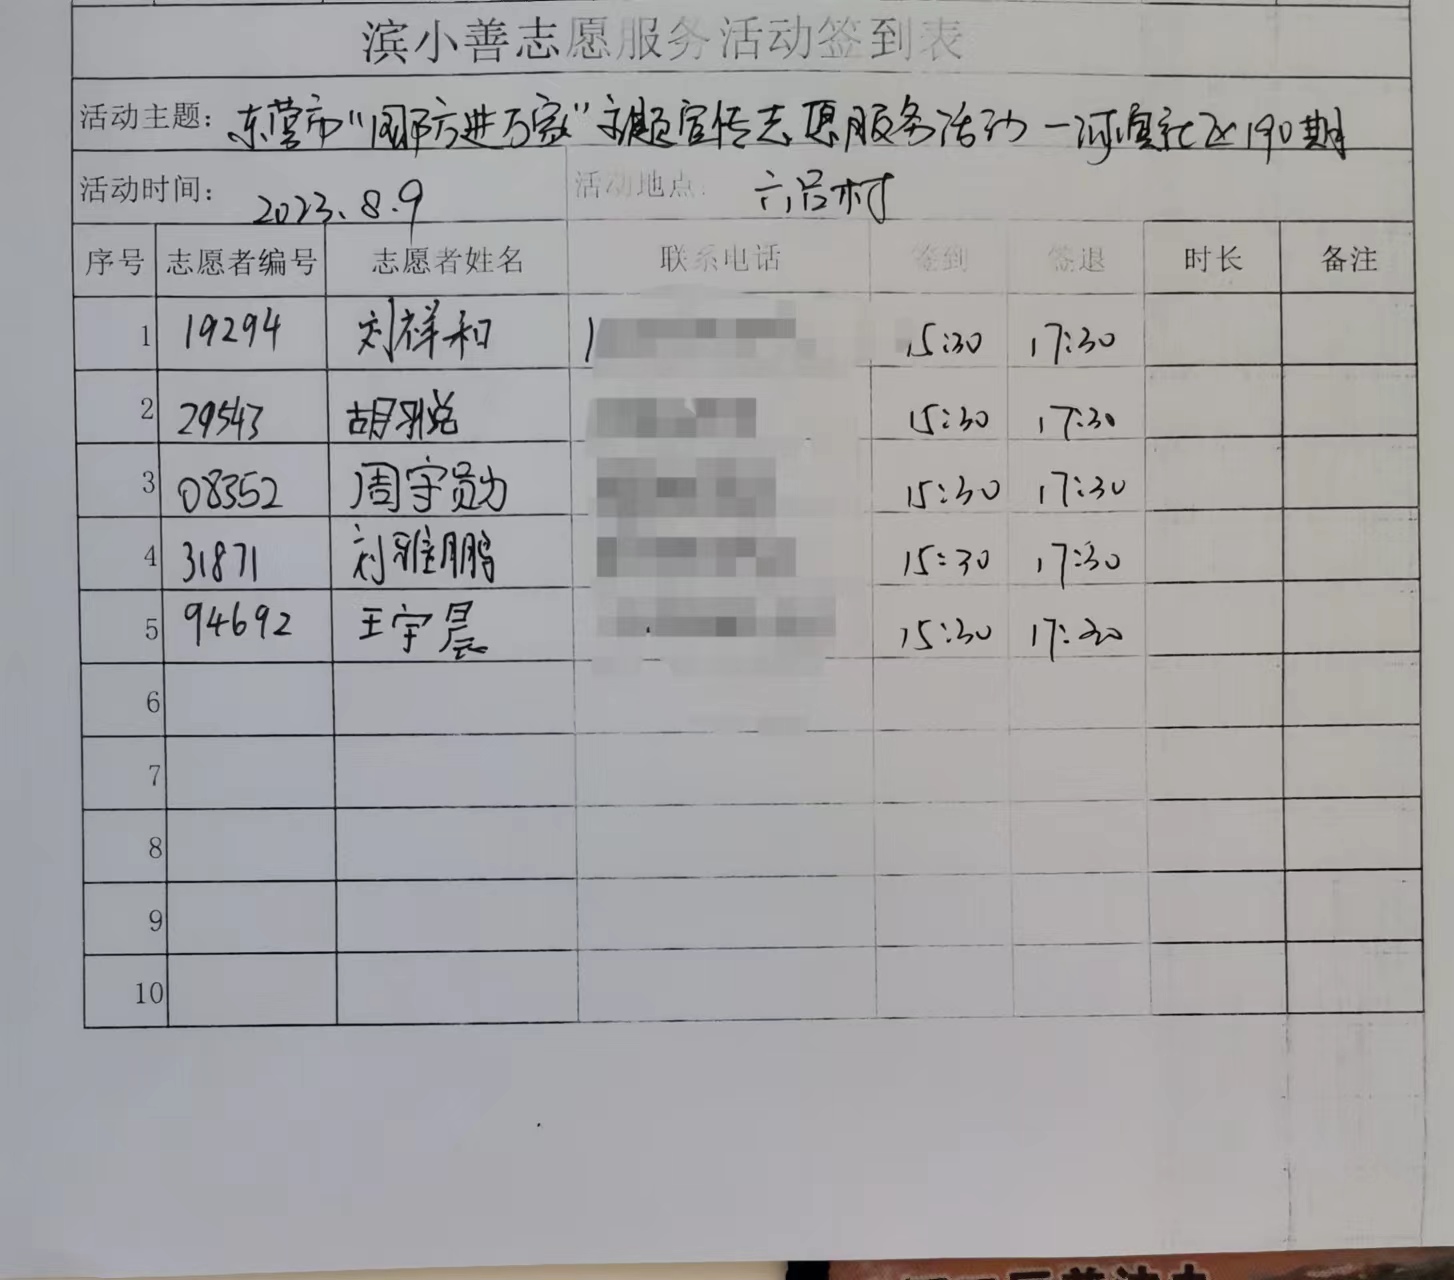 滨小善志愿服务活动签到表
活动主题: 东营市“国防进万家”主题宣传志愿服务活动—河滨社区190期
活动时间: 2023.8.9 活动地点: 六吕村
序号 志愿者编号 志愿者姓名 联系电话 签到 签退 时长 备注
1 19294 刘祥和 1 15:30 17:30
2 29543 胡羽悦 15:30 17:30
3 08352 周宇勋 15:30 17:30
4 31871 刘雅鹏 15:30 17:30
5 94692 王宇晨 15:30 17:30
6
7
8
9
10